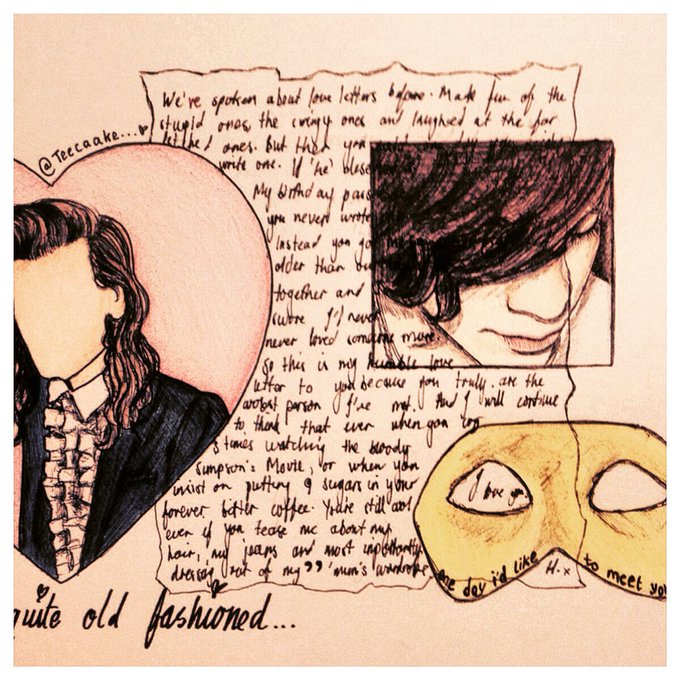 @Teecaake...
We've spoken about love letters before. Make fun of the
stupid ones, the cringy ones and laughed at the far
ones. But then you
write one. If 'he'
My birthday
you never wrote
Instead you
older than
together and
swore I'd never
never loved someone more
so this is my humble love
letter to you because you truly are the
person I've met. And I will continue
to think that even when you
5 times watching the bloody
Simpson's Movie, or when you
insist on putting 9 sugars in your
forever bitter coffee. You're still cool
even if you tease me about my
hair, my jeans and most importantly
dressed out of my "mum's wardrobe
H.x
I love you
One day i'd like to meet you
quite old fashioned...